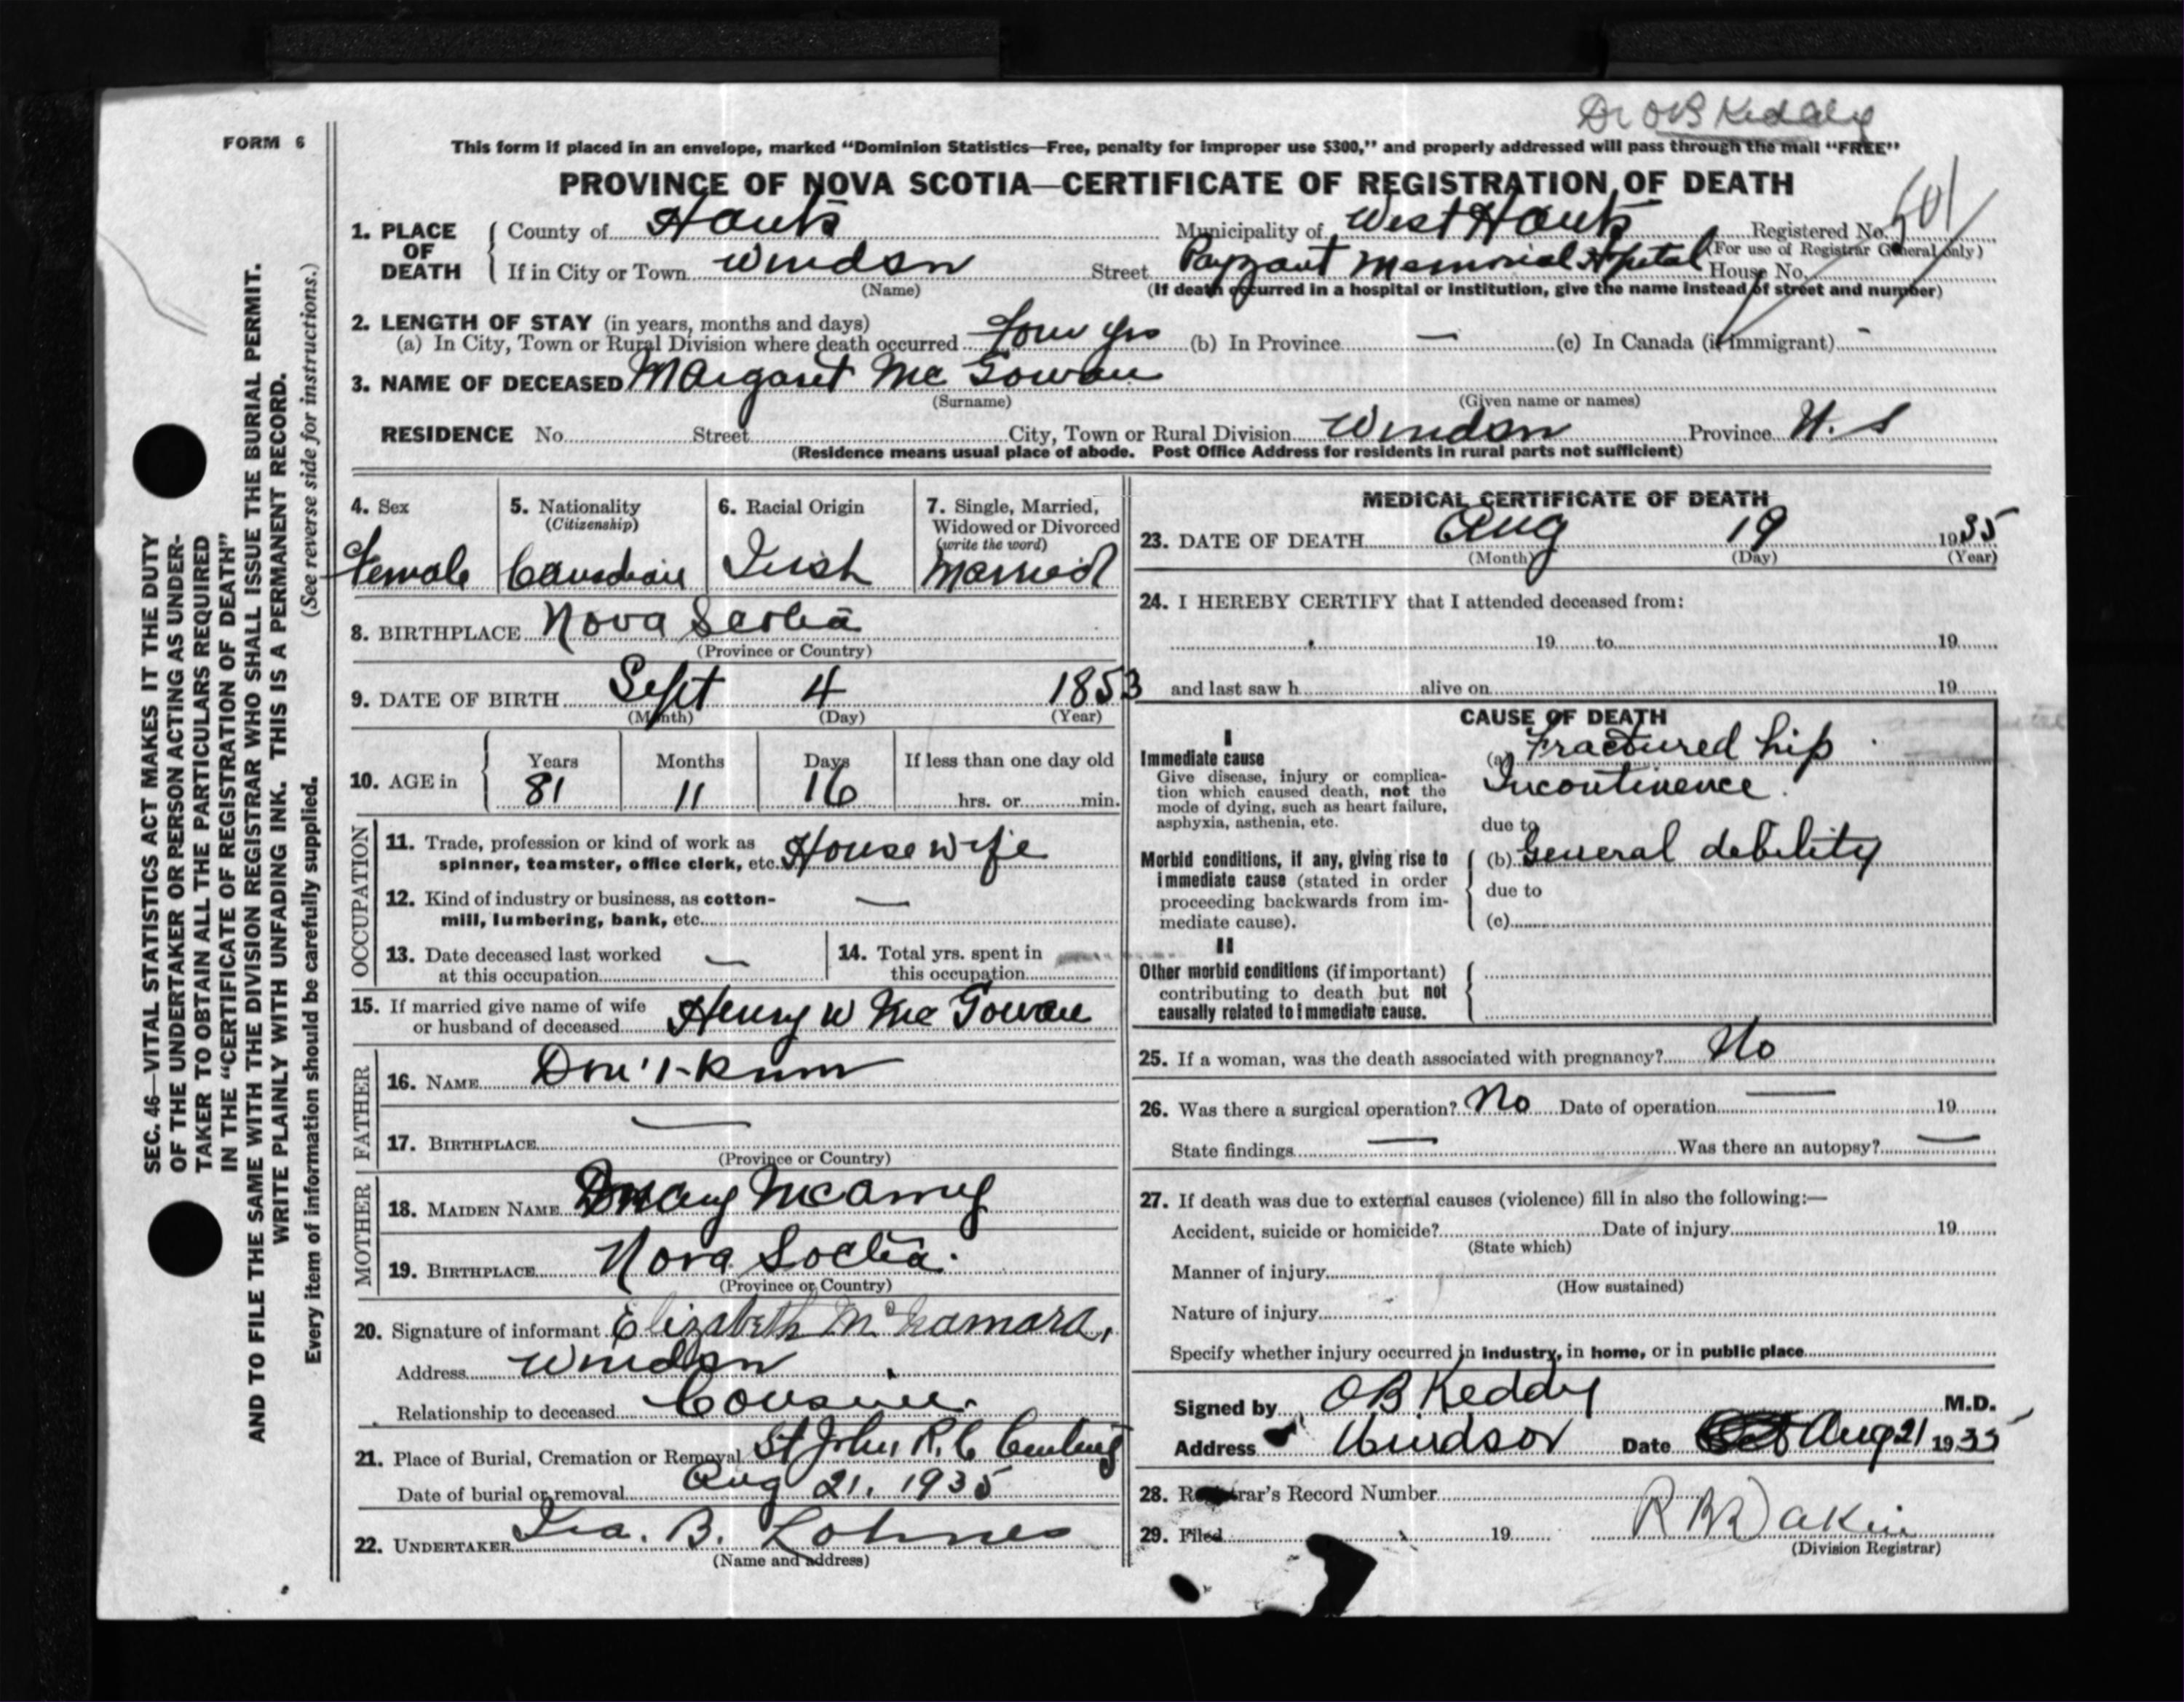 Dr OB Keddy
FORM 6
This form if placed in an envelope, marked “Dominion Statistics—Free, penalty for improper use $300,” and properly addressed will pass through the mail “FREE”
PROVINCE OF NOVA SCOTIA—CERTIFICATE OF REGISTRATION OF DEATH
1. PLACE OF DEATH County of Hants Municipality of West Hants Registered No. 501
(For use of Registrar General only)
If in City or Town Windsor Street Payzant Memorial Hospital House No.
(Name) (If death occurred in a hospital or institution, give the name instead of street and number)
2. LENGTH OF STAY (in years, months and days)
(a) In City, Town or Rural Division where death occurred four yrs (b) In Province — (c) In Canada (if immigrant) -
3. NAME OF DECEASED Margaret Mc Gowan
(Surname) (Given name or names)
RESIDENCE No. Street City, Town or Rural Division Windsor Province N. S
(Residence means usual place of abode. Post Office Address for residents in rural parts not sufficient)
4. Sex Female
5. Nationality (Citizenship) Canadian
6. Racial Origin Irish
7. Single, Married, Widowed or Divorced (write the word) Married
8. BIRTHPLACE Nova Scotia
(Province or Country)
9. DATE OF BIRTH Sept 4 1853
(Month) (Day) (Year)
10. AGE in Years 81 Months 11 Days 16 If less than one day old
hrs. or min.
OCCUPATION
11. Trade, profession or kind of work as
spinner, teamster, office clerk, etc. House wife
12. Kind of industry or business, as cotton-
mill, lumbering, bank, etc. —
13. Date deceased last worked
at this occupation —
14. Total yrs. spent in
this occupation
15. If married give name of wife
or husband of deceased Henry W Mc Gowan
FATHER
16. NAME Don't know
17. BIRTHPLACE —
(Province or Country)
MOTHER
18. MAIDEN NAME Mary
19. BIRTHPLACE Nova Soctia.
(Province or Country)
20. Signature of informant Elizabeth McNamara,
Address Windsor
Relationship to deceased Cousin.
21. Place of Burial, Cremation or Removal St John R. C Cemetery
Date of burial or removal Aug 21, 1935
22. UNDERTAKER Ira. B. Lohnes
(Name and address)
MEDICAL CERTIFICATE OF DEATH
23. DATE OF DEATH Aug 19 1935
(Month) (Day) (Year)
24. I HEREBY CERTIFY that I attended deceased from:
19 to 19
and last saw h alive on 19
CAUSE OF DEATH
I
Immediate cause
Give disease, injury or complica-
tion which caused death, not the
mode of dying, such as heart failure,
asphyxia, asthenia, etc.
(a) Fractured hip
Incontinence.
due to
Morbid conditions, if any, giving rise to
immediate cause (stated in order
proceeding backwards from im-
mediate cause).
(b) General debility
due to
(c)
II
Other morbid conditions (if important)
contributing to death but not
causally related to immediate cause.
25. If a woman, was the death associated with pregnancy? No
26. Was there a surgical operation? No Date of operation — 19
State findings — Was there an autopsy? —
27. If death was due to external causes (violence) fill in also the following:—
Accident, suicide or homicide? Date of injury 19
(State which)
Manner of injury
(How sustained)
Nature of injury
Specify whether injury occurred in industry, in home, or in public place
Signed by OB Keddy M.D.
Address Windsor Date Aug 21 1935
28. Registrar's Record Number
29. Filed 19 Dakin
(Division Registrar)
SEC. 46—VITAL STATISTICS ACT MAKES IT THE DUTY
OF THE UNDERTAKER OR PERSON ACTING AS UNDER-
TAKER TO OBTAIN ALL THE PARTICULARS REQUIRED
IN THE “CERTIFICATE OF REGISTRATION OF DEATH”
AND TO FILE THE SAME WITH THE DIVISION REGISTRAR WHO SHALL ISSUE THE BURIAL PERMIT.
WRITE PLAINLY WITH UNFADING INK. THIS IS A PERMANENT RECORD.
Every item of information should be carefully supplied. (See reverse side for instructions.)